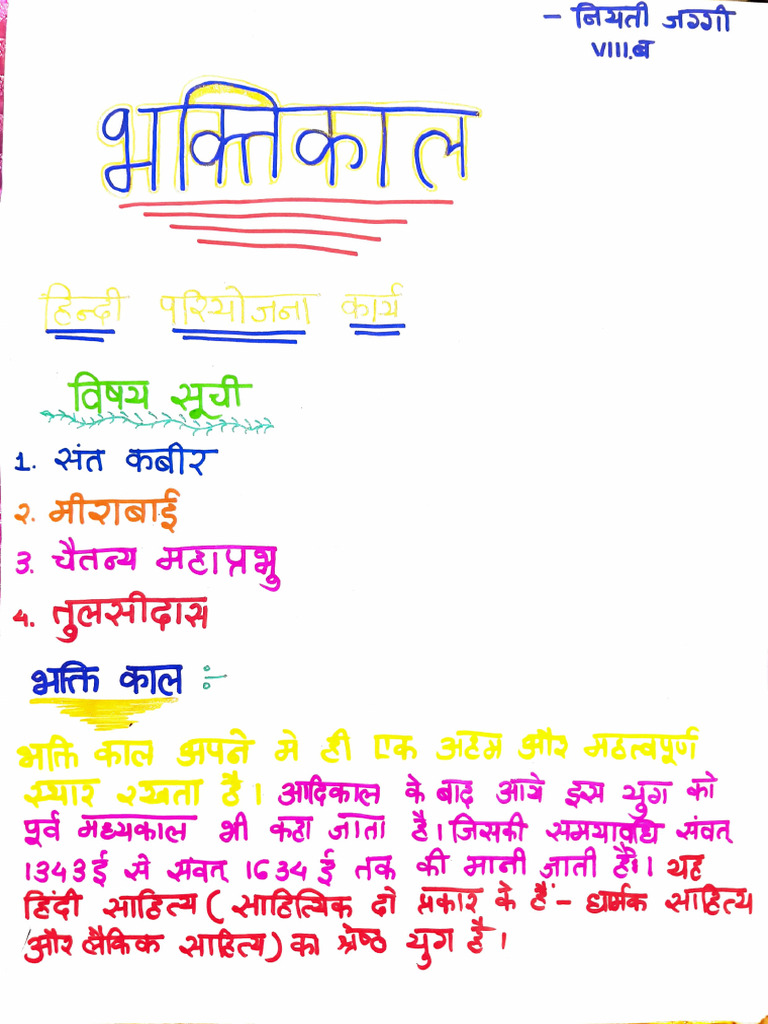 - नियती जग्गी
VIII.ब
भक्तिकाल
हिन्दी परियोजना कार्य
विषय सूची
1. संत कबीर
2. मीराबाई
3. चैतन्य महाप्रभु
4. तुलसीदास
भक्ति काल :-
भक्ति काल अपने मे ही एक अहम और महत्वपूर्ण
स्थार रखता है। आदिकाल के बाद आये इस युग को
पूर्व मध्यकाल भी कहा जाता है। जिसकी समयावधि संवत्
1343ई से संवत् 1634ई तक की मानी जाती हैं। यह
हिंदी साहित्य (साहित्यिक दो प्रकार के हैं - धार्मक साहित्य
और लैकिक साहित्य) का श्रेष्ठ युग है।